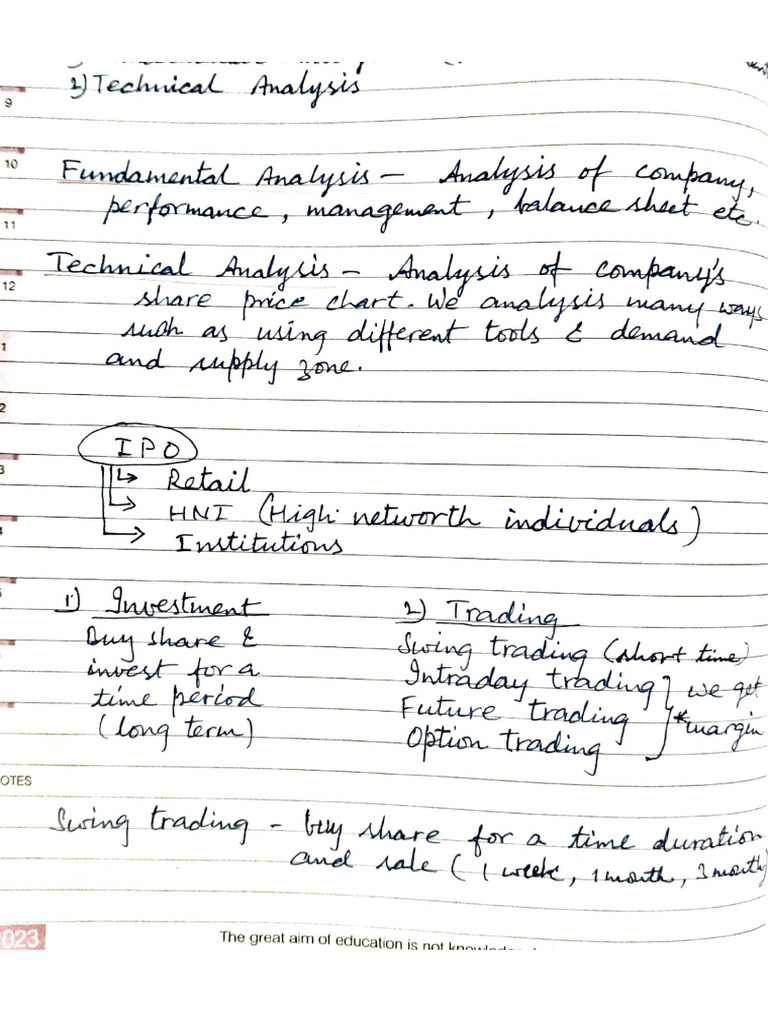 2) Technical Analysis
9
10
Fundamental Analysis - Analysis of company,
performance, management, balance sheet etc.
11
Technical Analysis - Analysis of company's
12
share price chart. We analysis many ways
such as using different tools & demand
1
and supply zone.
2
IPO
3
Retail
HNI (High networth individuals)
4
Institutions
5
1) Investment
2) Trading
Buy share &
invest for a
time period
(long term)
Swing trading (short time)
Intraday trading
Future trading
Option trading
we get
*margin
OTES
Swing trading - buy share for a time duration
and sale (1 week, 1 month, 3 month)
2023
The great aim of education is not